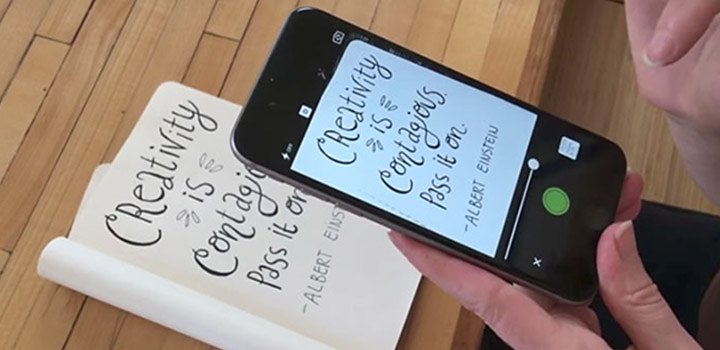 Creativity
is
Contagious
Pass it on
-ALBERT EINST
OFF
Creativity
is
Contagious.
Pass it on.
-ALBERT EINSTEIN